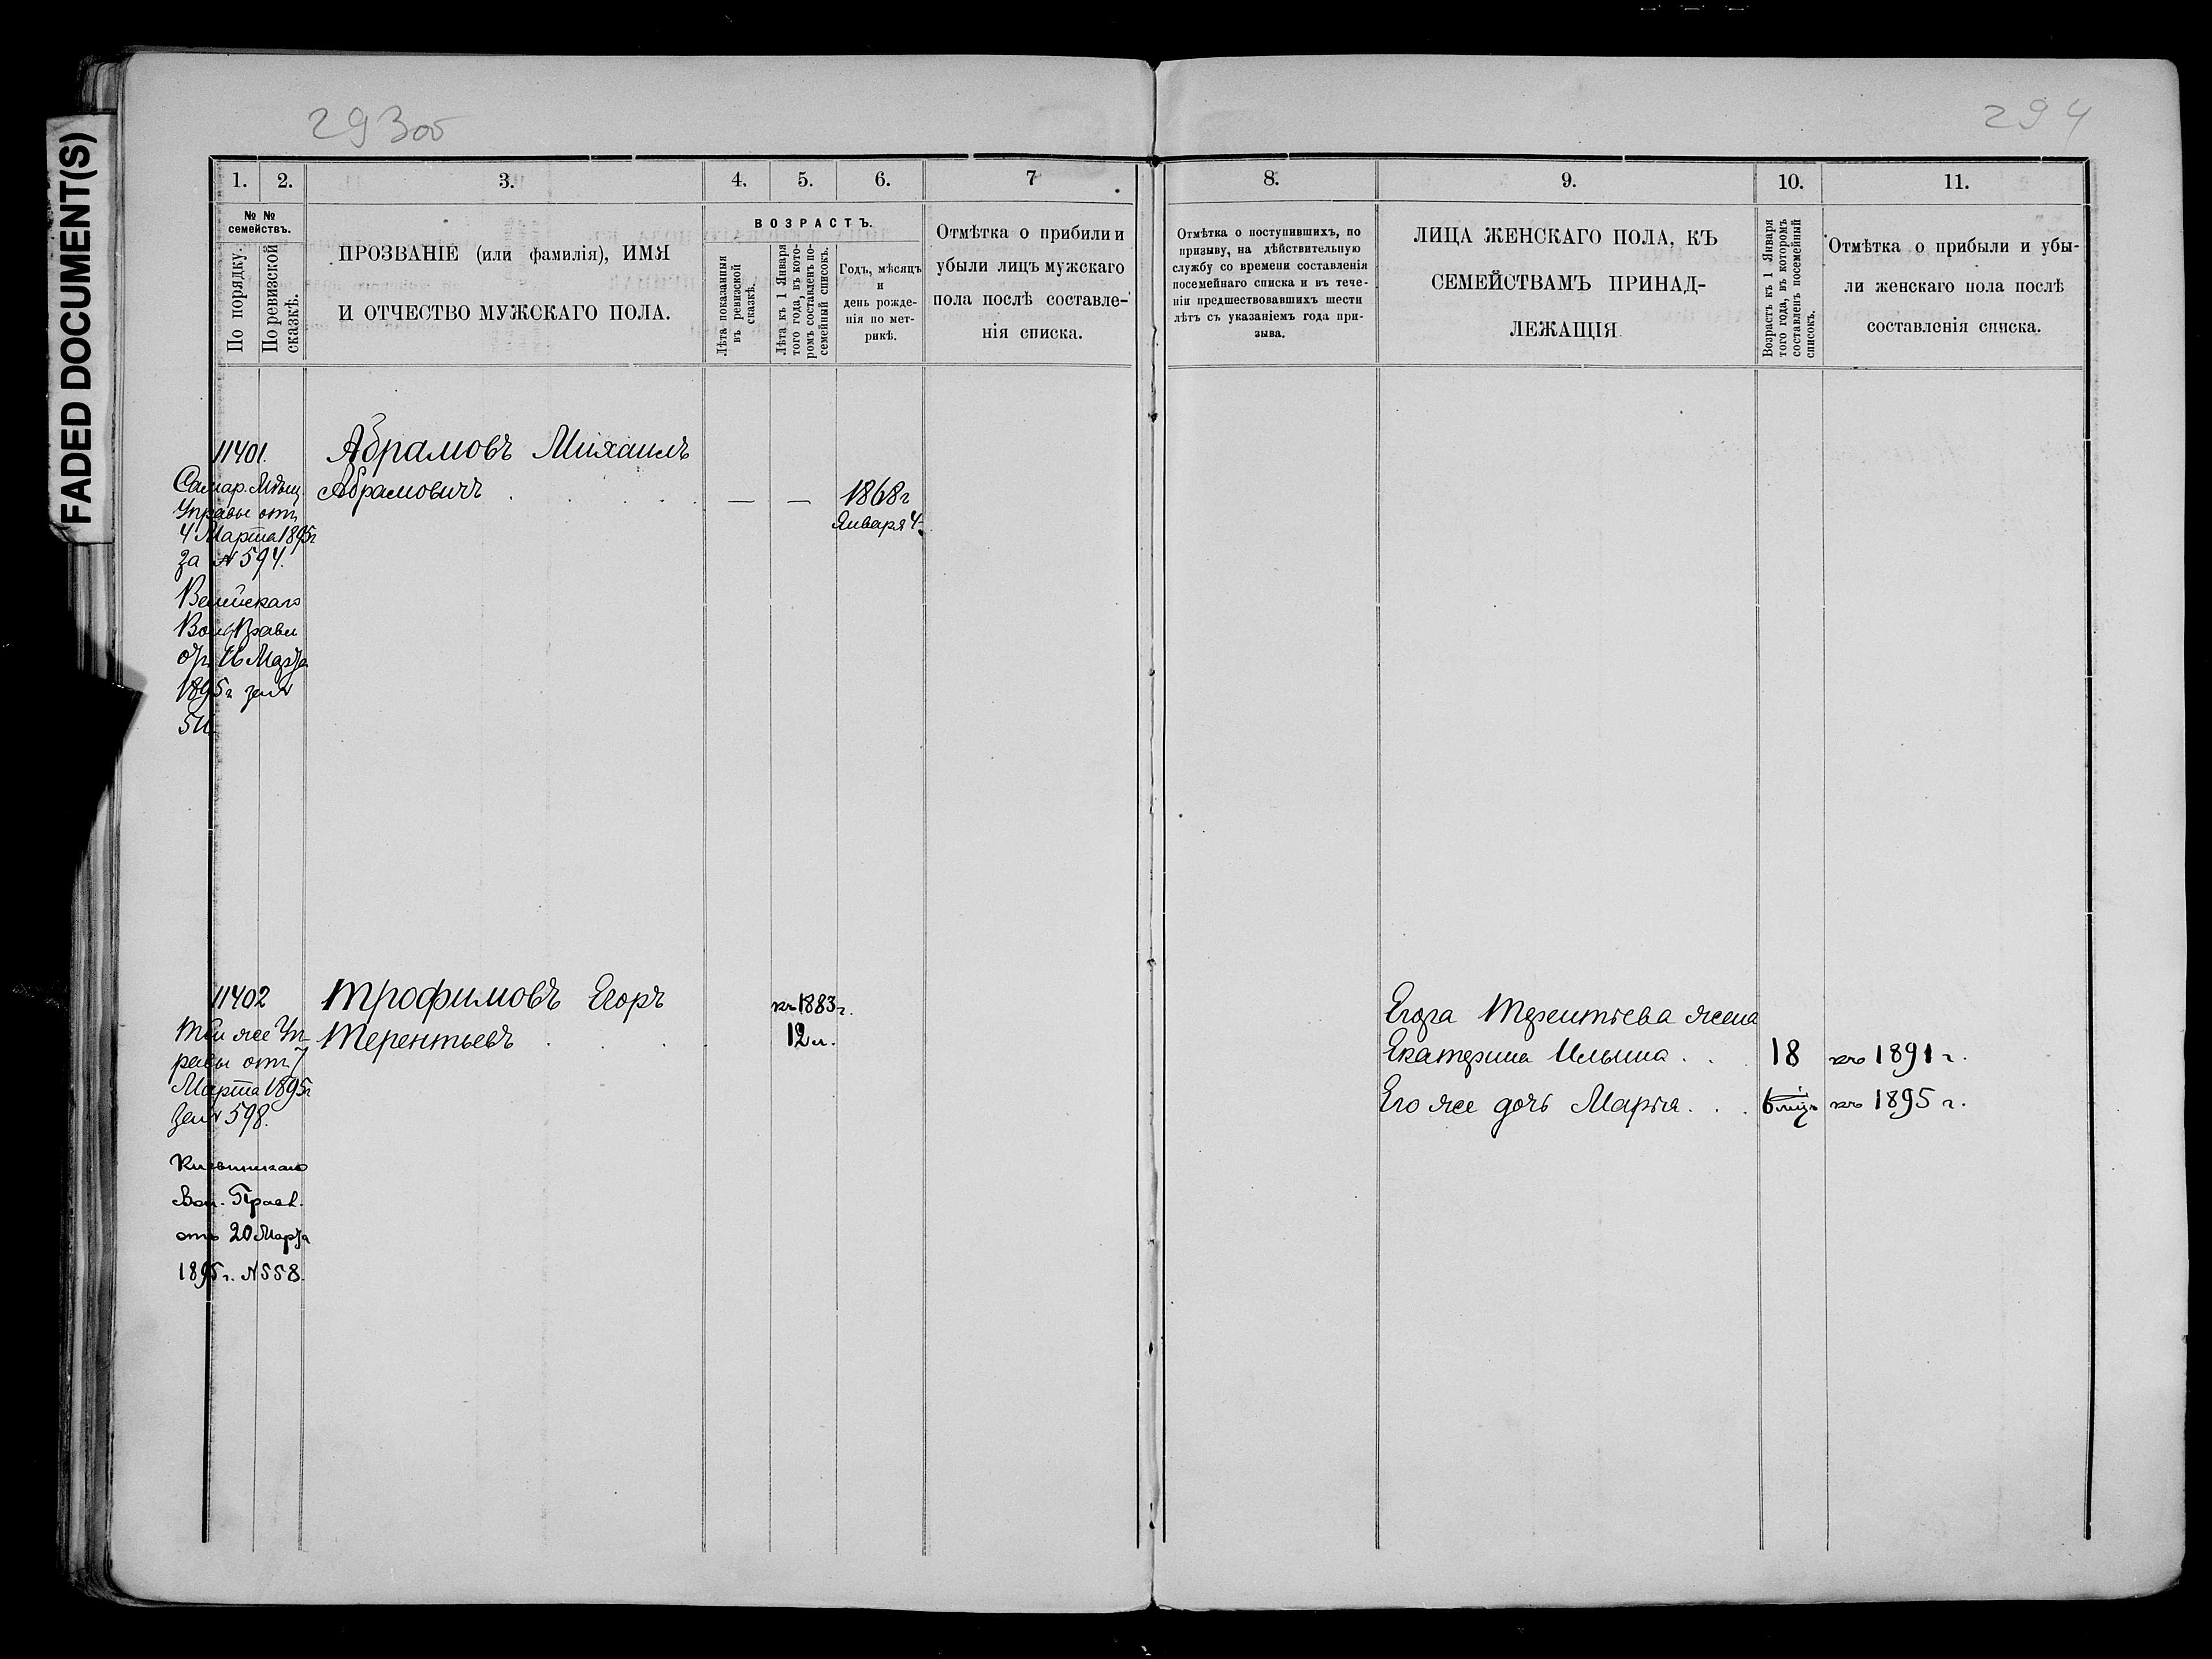 FADED DOCUMENT(S)
293об
294
1.
2.
3.
4.
5.
6.
7
№ №
семействъ.
По порядку.
По ревизской
сказкѣ.
ПРОЗВАНІЕ (или фамилія), ИМЯ
И ОТЧЕСТВО МУЖСКАГО ПОЛА.
ВОЗРАСТЪ.
Лѣта показанныя
въ ревизской
сказкѣ.
Лѣта къ 1 Января
того года, въ кото-
ромъ составленъ по-
семейный списокъ.
Годъ, мѣсяцъ
и
день рожде-
нія по мет-
рикѣ.
Отмѣтка о прибили и
убыли лицъ мужскаго
пола послѣ составле-
нія списка.
11401.
Самар. Мѣщ.
Управы отъ
4 Марта 1895г
за № 594.
Вол. Прав
от 16 Марта
1895г за №
511
Абрамовъ Михаилъ
Абрамовичъ
— —
1868г
Января 4
11402
Той же Уп-
равы отъ 7
Марта 1895г
за № 598.
Вол. Правл.
отъ 20 Марта
1895г. № 558.
Трофимовъ Егоръ
Терентьевъ
къ 1883г.
12 л.
8.
9.
10.
11.
Отмѣтка о поступившихъ, по
призыву, на дѣйствительную
службу со времени составленія
посемейнаго списка и въ тече-
ніи предшествовавшихъ шести
лѣтъ съ указаніемъ года при-
зыва.
ЛИЦА ЖЕНСКАГО ПОЛА, КЪ
СЕМЕЙСТВАМЪ ПРИНАД-
ЛЕЖАЩІЯ
Возрастъ къ 1 Января
того года, въ которомъ
составленъ посемейный
списокъ.
Отмѣтка о прибыли и убы-
ли женскаго пола послѣ
составленія списка.
Егора Терентьева жена
Екатерина Ильина . . 18 къ 1891 г.
Его же дочь Марія . . . 6 мѣц къ 1895 г.